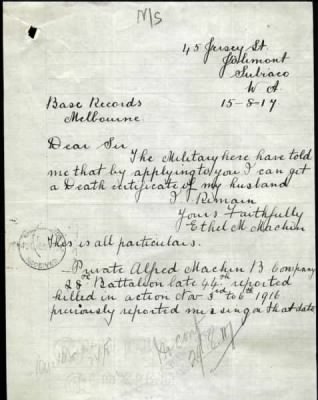 M/S
45 Jersey St.
Jolimont
Subiaco
W A
Base Records
15-8-17
Melbourne
Dear Sir
The Military here have told
me that by applying to you I can get
a Death certificate of my husband
I Remain
Yours Faithfully
Ethel M Machin
This is all particulars.
Private Alfred Machin B Company
28th Battalion late 44th reported
killed in action Nov 3rd to 6th 1916
previously reported missing on that date
RECEIVED